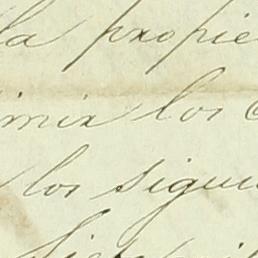 la propie
imir los
los sigui